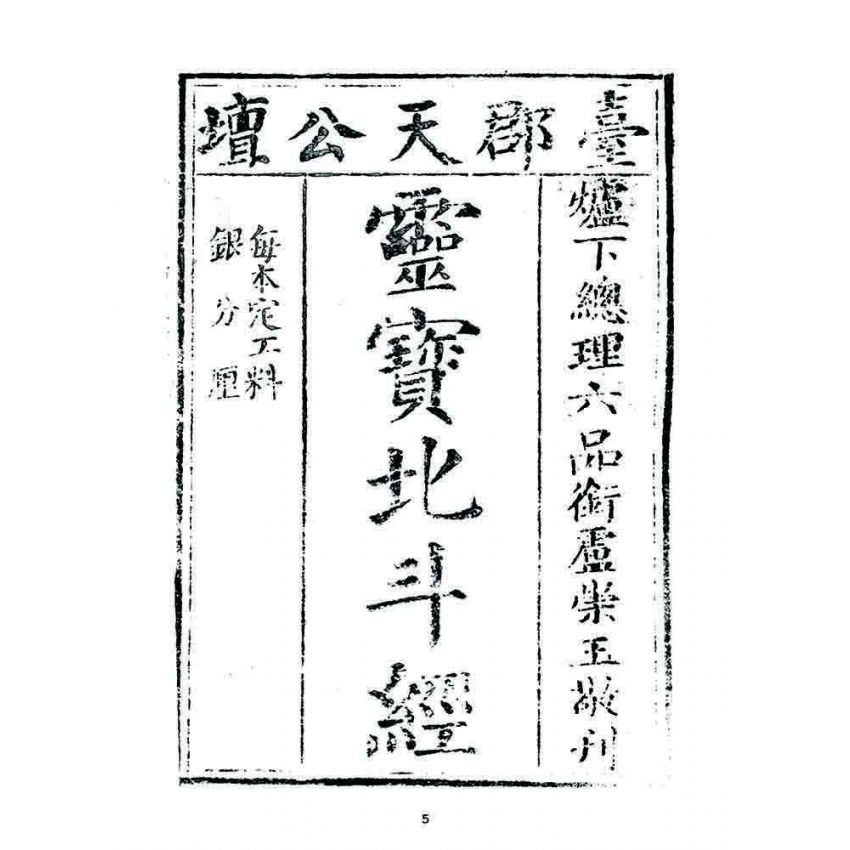 臺郡天公壇
爐下總理六品銜盧崇玉敬刊
靈寶北斗經
每本定工料
銀分厘
5